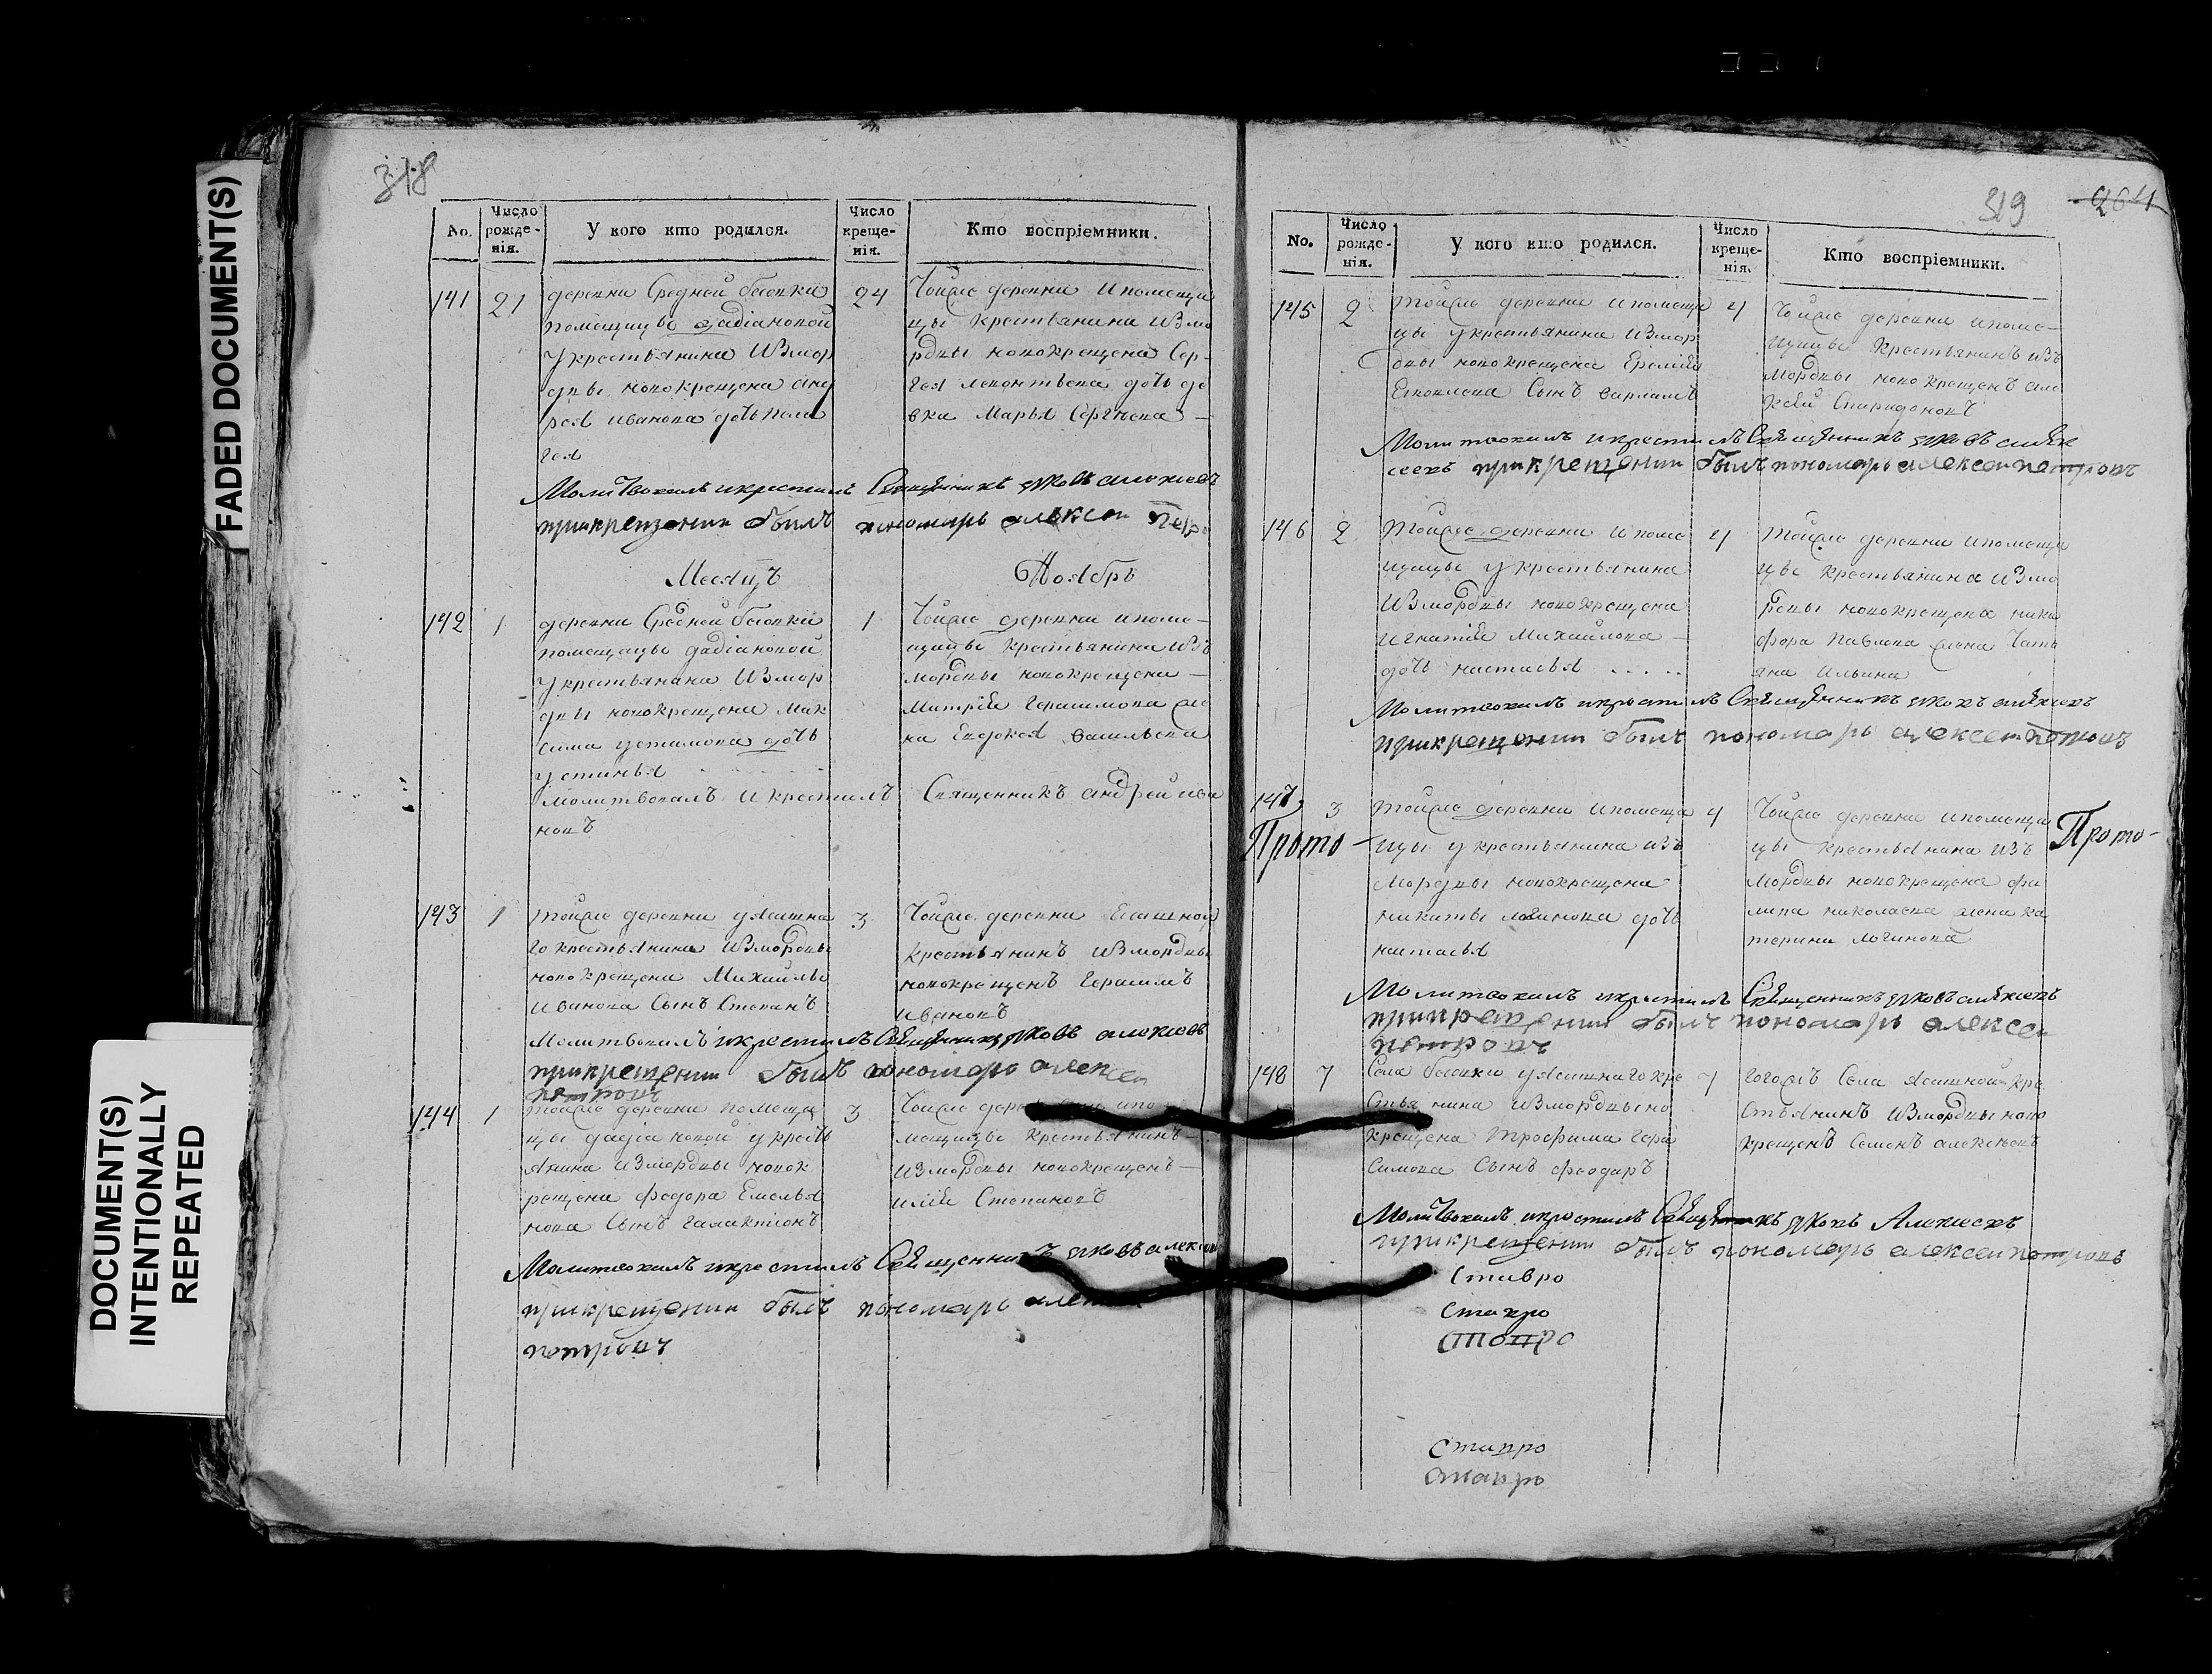 FADED DOCUMENT(S)
DOCUMENT(S)
INTENTIONALLY
REPEATED
318
No.
Число
рожде-
нія.
У кого кто родился.
Число
креще-
нія.
Кто воспріемники.
141 21
деревни Средней
помещицы дадіановой
у крестьянина измор
двы новокрещена анд
рея иванова дочь пела
гея
24
Тойже деревни ипомещи
цы крестьянина измо
рдвы новокрещена Сер-
гея леонтьева дочь де
вка Марья Сергѣева
Молитвовалъ икрестилъ Священникъ яковъ алексеевъ
прикрещении былъ пономарь алексеи
Месяцъ Ноябрь
142 1
деревни Средней
помещицы дадіановой
у крестьянина измор
двы новокрещена Мак
сима устимова дочь
устинья
1
Тойже деревни ипоме-
щицы крестьянина изъ
мордвы новокрещена
Митрія герасимова же
на Евдокея васильева
Молитвовалъ и крестилъ Священникъ андрей ива
новъ
143 1
тойже деревни уясашна
го крестьянина измордвы
новокрещена Михайлы
иванова Сынъ Степанъ
3
Тойже деревни Ясашной
крестьянинъ измордвы
новокрещенъ герасимъ
ивановъ
Молитвовалъ икрестилъ Священникъ яковъ алексеевъ
прикрещении былъ пономарь алексеи
петровъ
144 1
тойже деревни помещи
цы дадіановой укресть
янина измордвы новок
рещена федора Емелья
нова Сынъ галактіонъ
3
Тойже деревни ипо
мещицы крестьянинъ
измордвы новокрещенъ
илія Степановъ
Молитвовалъ икрестилъ Священникъ яковъ
прикрещении былъ пономарь
петровъ
319 264
No.
Число
рожде-
нія.
У кого кто родился.
Число
креще-
нія.
Кто воспріемники.
145 2
тойже деревни ипомещи
цы укрестьянина измор
двы новокрещена Еремія
Сынъ варламъ
4
Тойже деревни ипоме-
щицы крестьянинъ изъ
Мордвы новокрещенъ але
ксей Спиридоновъ
Молитвовалъ икрестилъ Священникъ яковъ алек
сеевъ прикрещении былъ пономарь алексеи петровъ
146 2
Тойже деревни ипоме
щицы укрестьянина
измордвы новокрещена
игнатія Михайлова
дочь настасья
4
Тойже деревни ипомещи
цы крестьянина измо
рдвы новокрещена ники
фора павлова жена тать
яна ильина
Молитвовалъ икрестилъ Священникъ яковъ алексеевъ
прикрещении былъ пономарь алексеи петровъ
147 3
тойже деревни ипомещи
цы укрестьянина изъ
Мордвы новокрещена
никиты логинова дочь
настасья
4
Тойже деревни ипомещи
цы крестьянина изъ
Мордвы новокрещена фи
липа николаева жена ка
терина логинова
Прото-
Прото-
Молитвовалъ икрестилъ Священникъ яковъ алексеевъ
прикрещении былъ пономарь алексеи
петровъ
148 7
Села уясашнаго кре
стьянина измордвы но
вокрещена трофима гера
симова Сынъ феодаръ
7
тогожъ Села Ясашной кре
стьянинъ измордвы ново
крещенъ Семенъ алексеевъ
Молитвовалъ икрестилъ Священникъ яковъ Алексеевъ
прикрещении былъ пономарь алексеи петровъ
Ставро
Ставро
Ставро
Ставро
Ставро